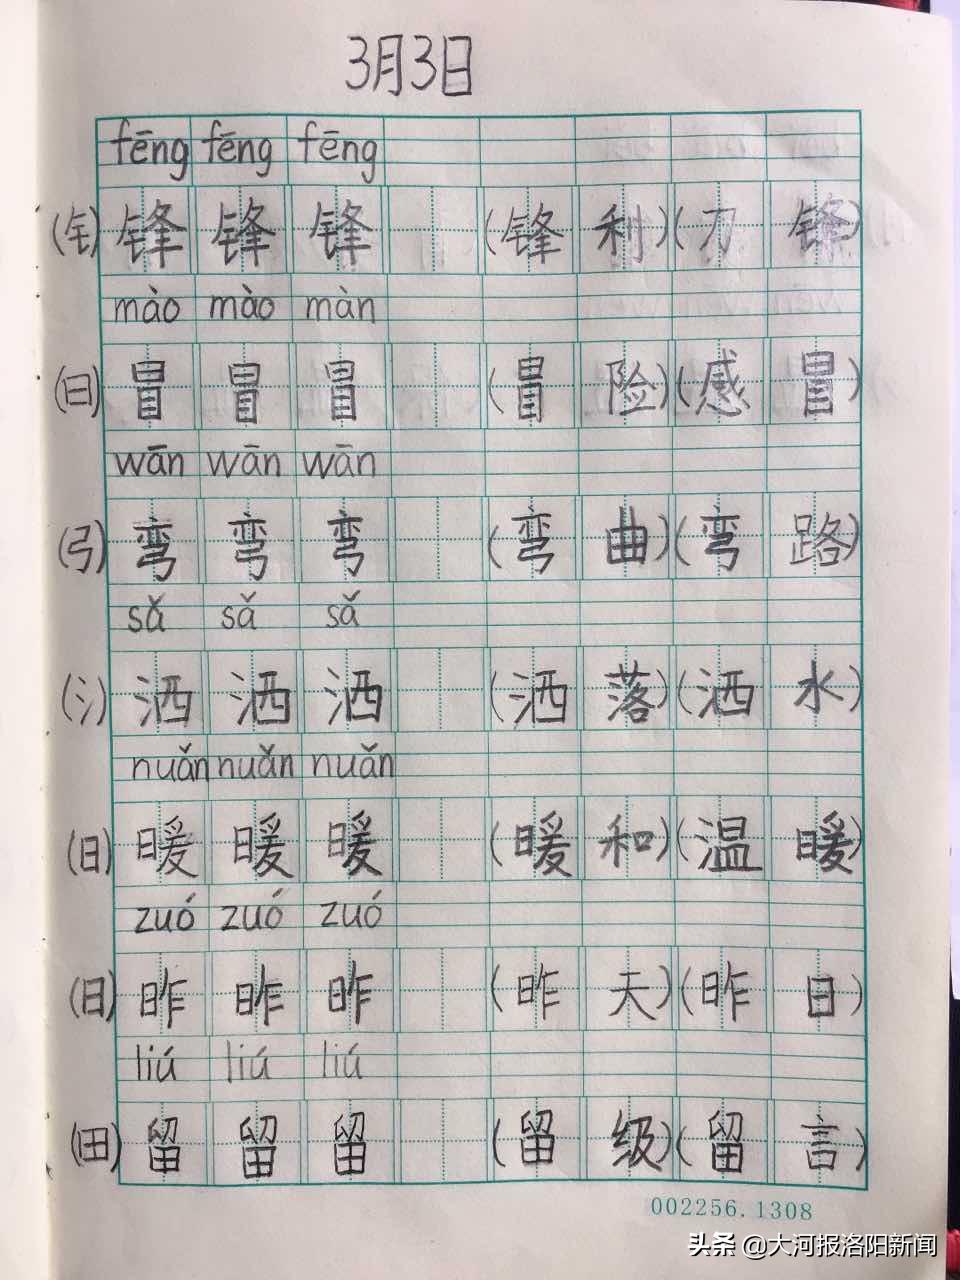 3月3日
fēng fēng fēng
(钅) 锋 锋 锋 (锋 利) (刀 锋)
mào mào màn
(曰) 冒 冒 冒 (冒 险) (感 冒)
wān wān wān
(弓) 弯 弯 弯 (弯 曲) (弯 路)
sǎ sǎ sǎ
(氵) 洒 洒 洒 (洒 落) (洒 水)
nuǎn nuǎn nuǎn
(日) 暖 暖 暖 (暖 和) (温 暖)
zuó zuó zuó
(日) 昨 昨 昨 (昨 天) (昨 日)
liú liú liú
(田) 留 留 留 (留 级) (留 言)
002256.1308
头条 @大河报洛阳新闻